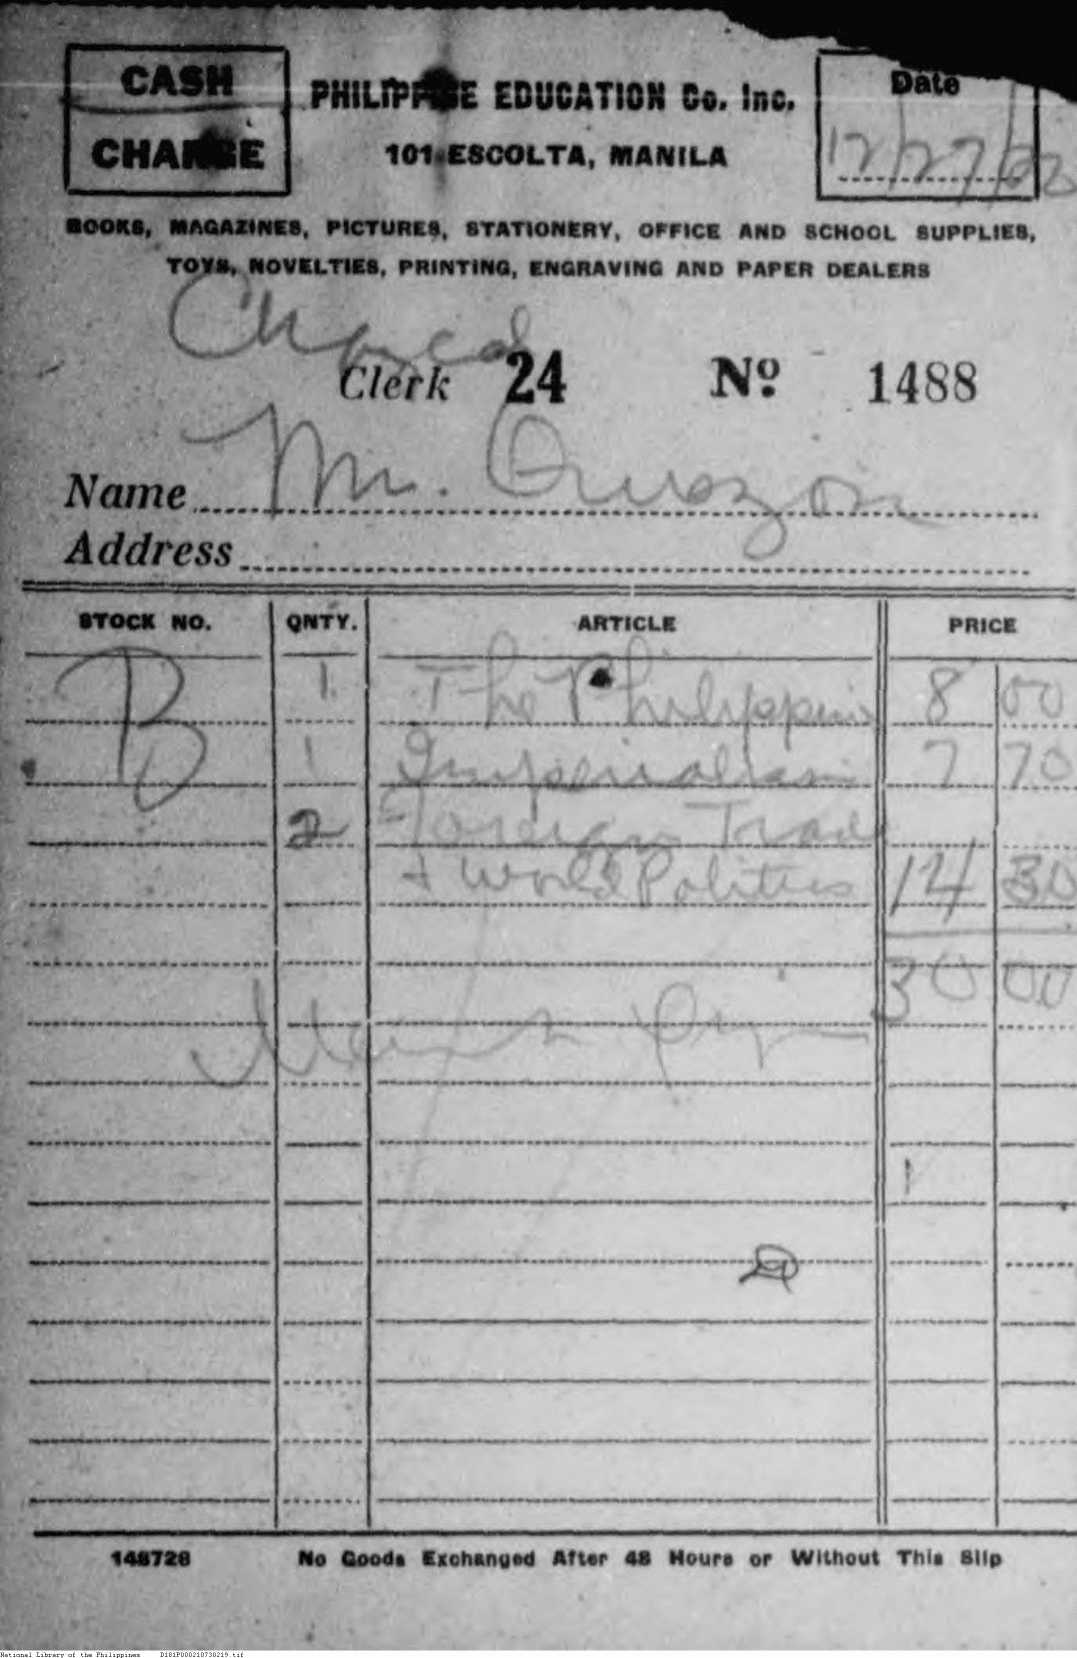 CASH
CHARGE
PHILIPPINE EDUCATION Co. Inc.
101 ESCOLTA, MANILA
Date
12/27/22
BOOKS, MAGAZINES, PICTURES, STATIONERY, OFFICE AND SCHOOL SUPPLIES,
TOYS, NOVELTIES, PRINTING, ENGRAVING AND PAPER DEALERS
Clerk 24 No. 1488
Name Mr. Quezon
Address
STOCK NO. QNTY. ARTICLE PRICE
1 The Philippine 8 00
1 Imperialism 7 70
2 Foreign Trade
+ World Politics 14 30
30 00
148728 No Goods Exchanged After 48 Hours or Without This Slip
National Library of the Philippines D181P000210730219.tif